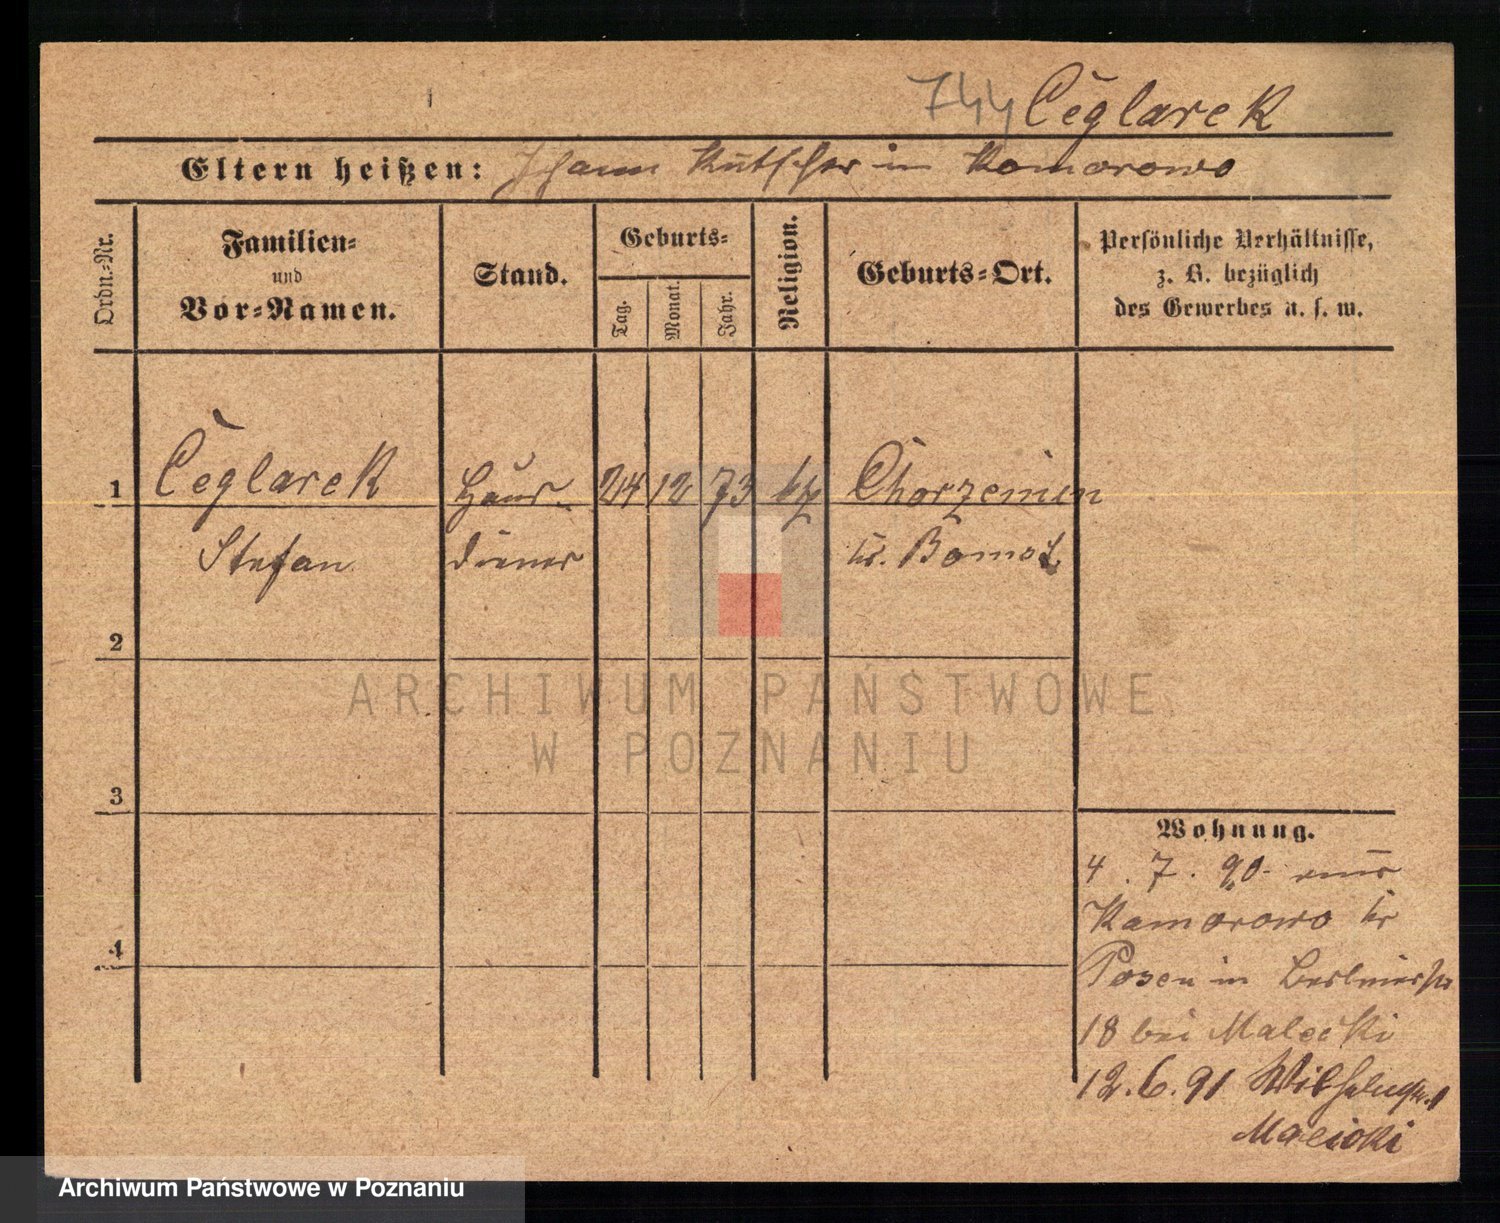 744 Ceglarek
Eltern heißen: Johann Kutscher in Komorowo
Ordn.-Nr.
Familien-
und
Vor-Namen.
Stand.
Geburts-
Tag.
Monat.
Jahr.
Religion.
Geburts-Ort.
Persönliche Verhältnisse,
z. B. bezüglich
des Gewerbes u. s. w.
1 Ceglarek Haus- 24 12 73 Chorzemin
Stefan diener Kr. Bomst
2
3
4
Wohnung.
4. 7. 90.
Komorowo Kr
Posen in Berlinerstr
18 bei Malecki
12.6.91 Wilhelmstr.
Malecki
ARCHIWUM PAŃSTWOWE
W POZNANIU
Archiwum Państwowe w Poznaniu